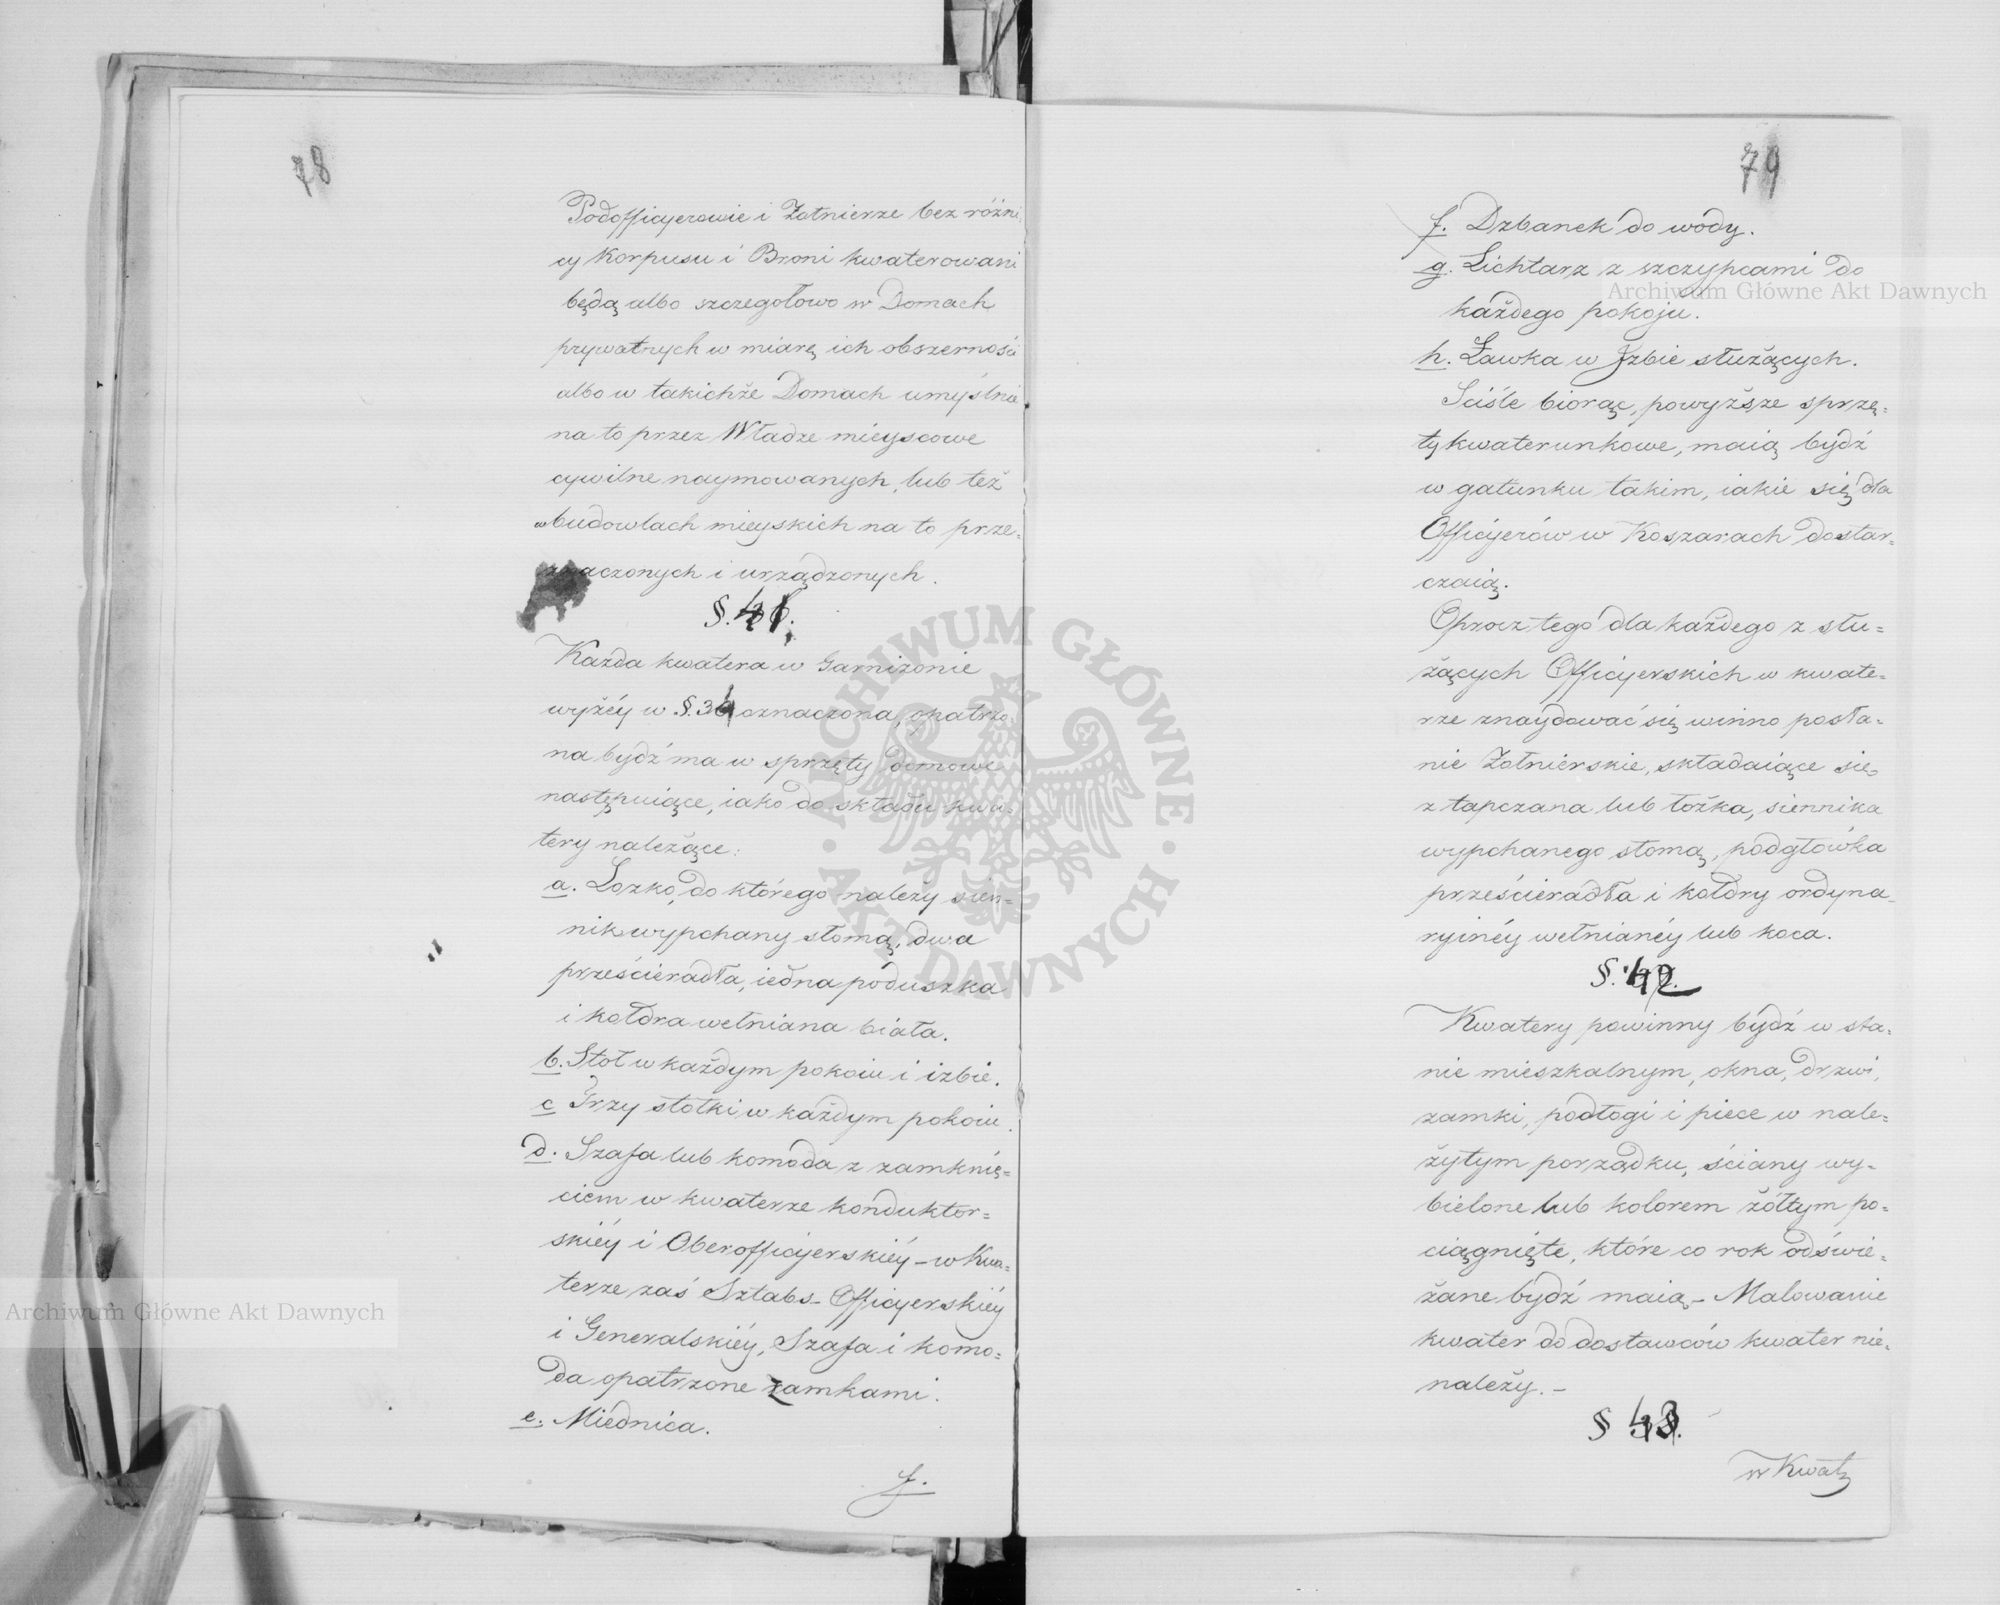 78
Podofficyerowie i Żołnierze bez różni
cy Korpusu i Broni kwaterowani
będą albo szczegołowo w Domach
prywatnych w miarę ich obszerności
albo w takichże Domach umyślnie
na to przez Władze mieyscowe
cywilne naymowanych, lub też
w budowlach mieyskich na to prze=
znaczonych i urządzonych.
§. 41.
Kazda kwatera w Garnizonie
wyżéy w §. 34 oznaczona, opatrzo=
na bydź ma w sprzęty domowe
następuiące, iako do składu kwa=
tery należące:
a. Lozko, do którego należy sien=
nik wypchany słomą, dwa
prześcieradła, iedna poduszka
i kołdra wełniana biała.
b. Stoł w każdym pokoiu i izbie.
c Trzy stołki w każdym pokoiu.
d. Szafa lub komoda z zamknię=
ciem w kwaterze konduktor=
skiéy i Oberofficyerskiéy – w Kwa=
terze zaś Sztabs-Officyerskiéy
i Generalskiéy, Szafa i komo=
da opatrzone zamkami.
e. Miednica.
f.
79
f. Dzbanek do wody.
g. Lichtarz z szczypcami do
każdego pokoju.
h. Ławka w Izbie służących.
Sciśle biorąc, powyższe sprzę=
ty kwaterunkowe, maią bydź
w gatunku takim, iakie się dla
Officyerów w Koszarach dostar=
czaią.
Oprocz tego dla każdego z słu=
żących Officyerskich w kwate=
rze znaydować się winno posła=
nie Żołnierskie, składaiące się
z tapczana lub łożka, siennika
wypchanego słomą, podgłówka
prześcieradła i kołdry ordyna
ryinéy wełnianéy lub koca.
§. 42.
Kwatery powinny bydź w sta=
nie mieszkalnym, okna, drzwi,
zamki, podłogi i piece w nale=
żytym porządku, ściany wy=
bielone lub kolorem żółtym po=
ciągnięte, które co rok odświe=
żane bydź maią – Malowanie
kwater do dostawców kwater nie=
należy. –
§ 43.
w Kwat
Archiwum Główne Akt Dawnych
Archiwum Główne Akt Dawnych
ARCHIWUM GŁÓWNE · AKT DAWNYCH ·